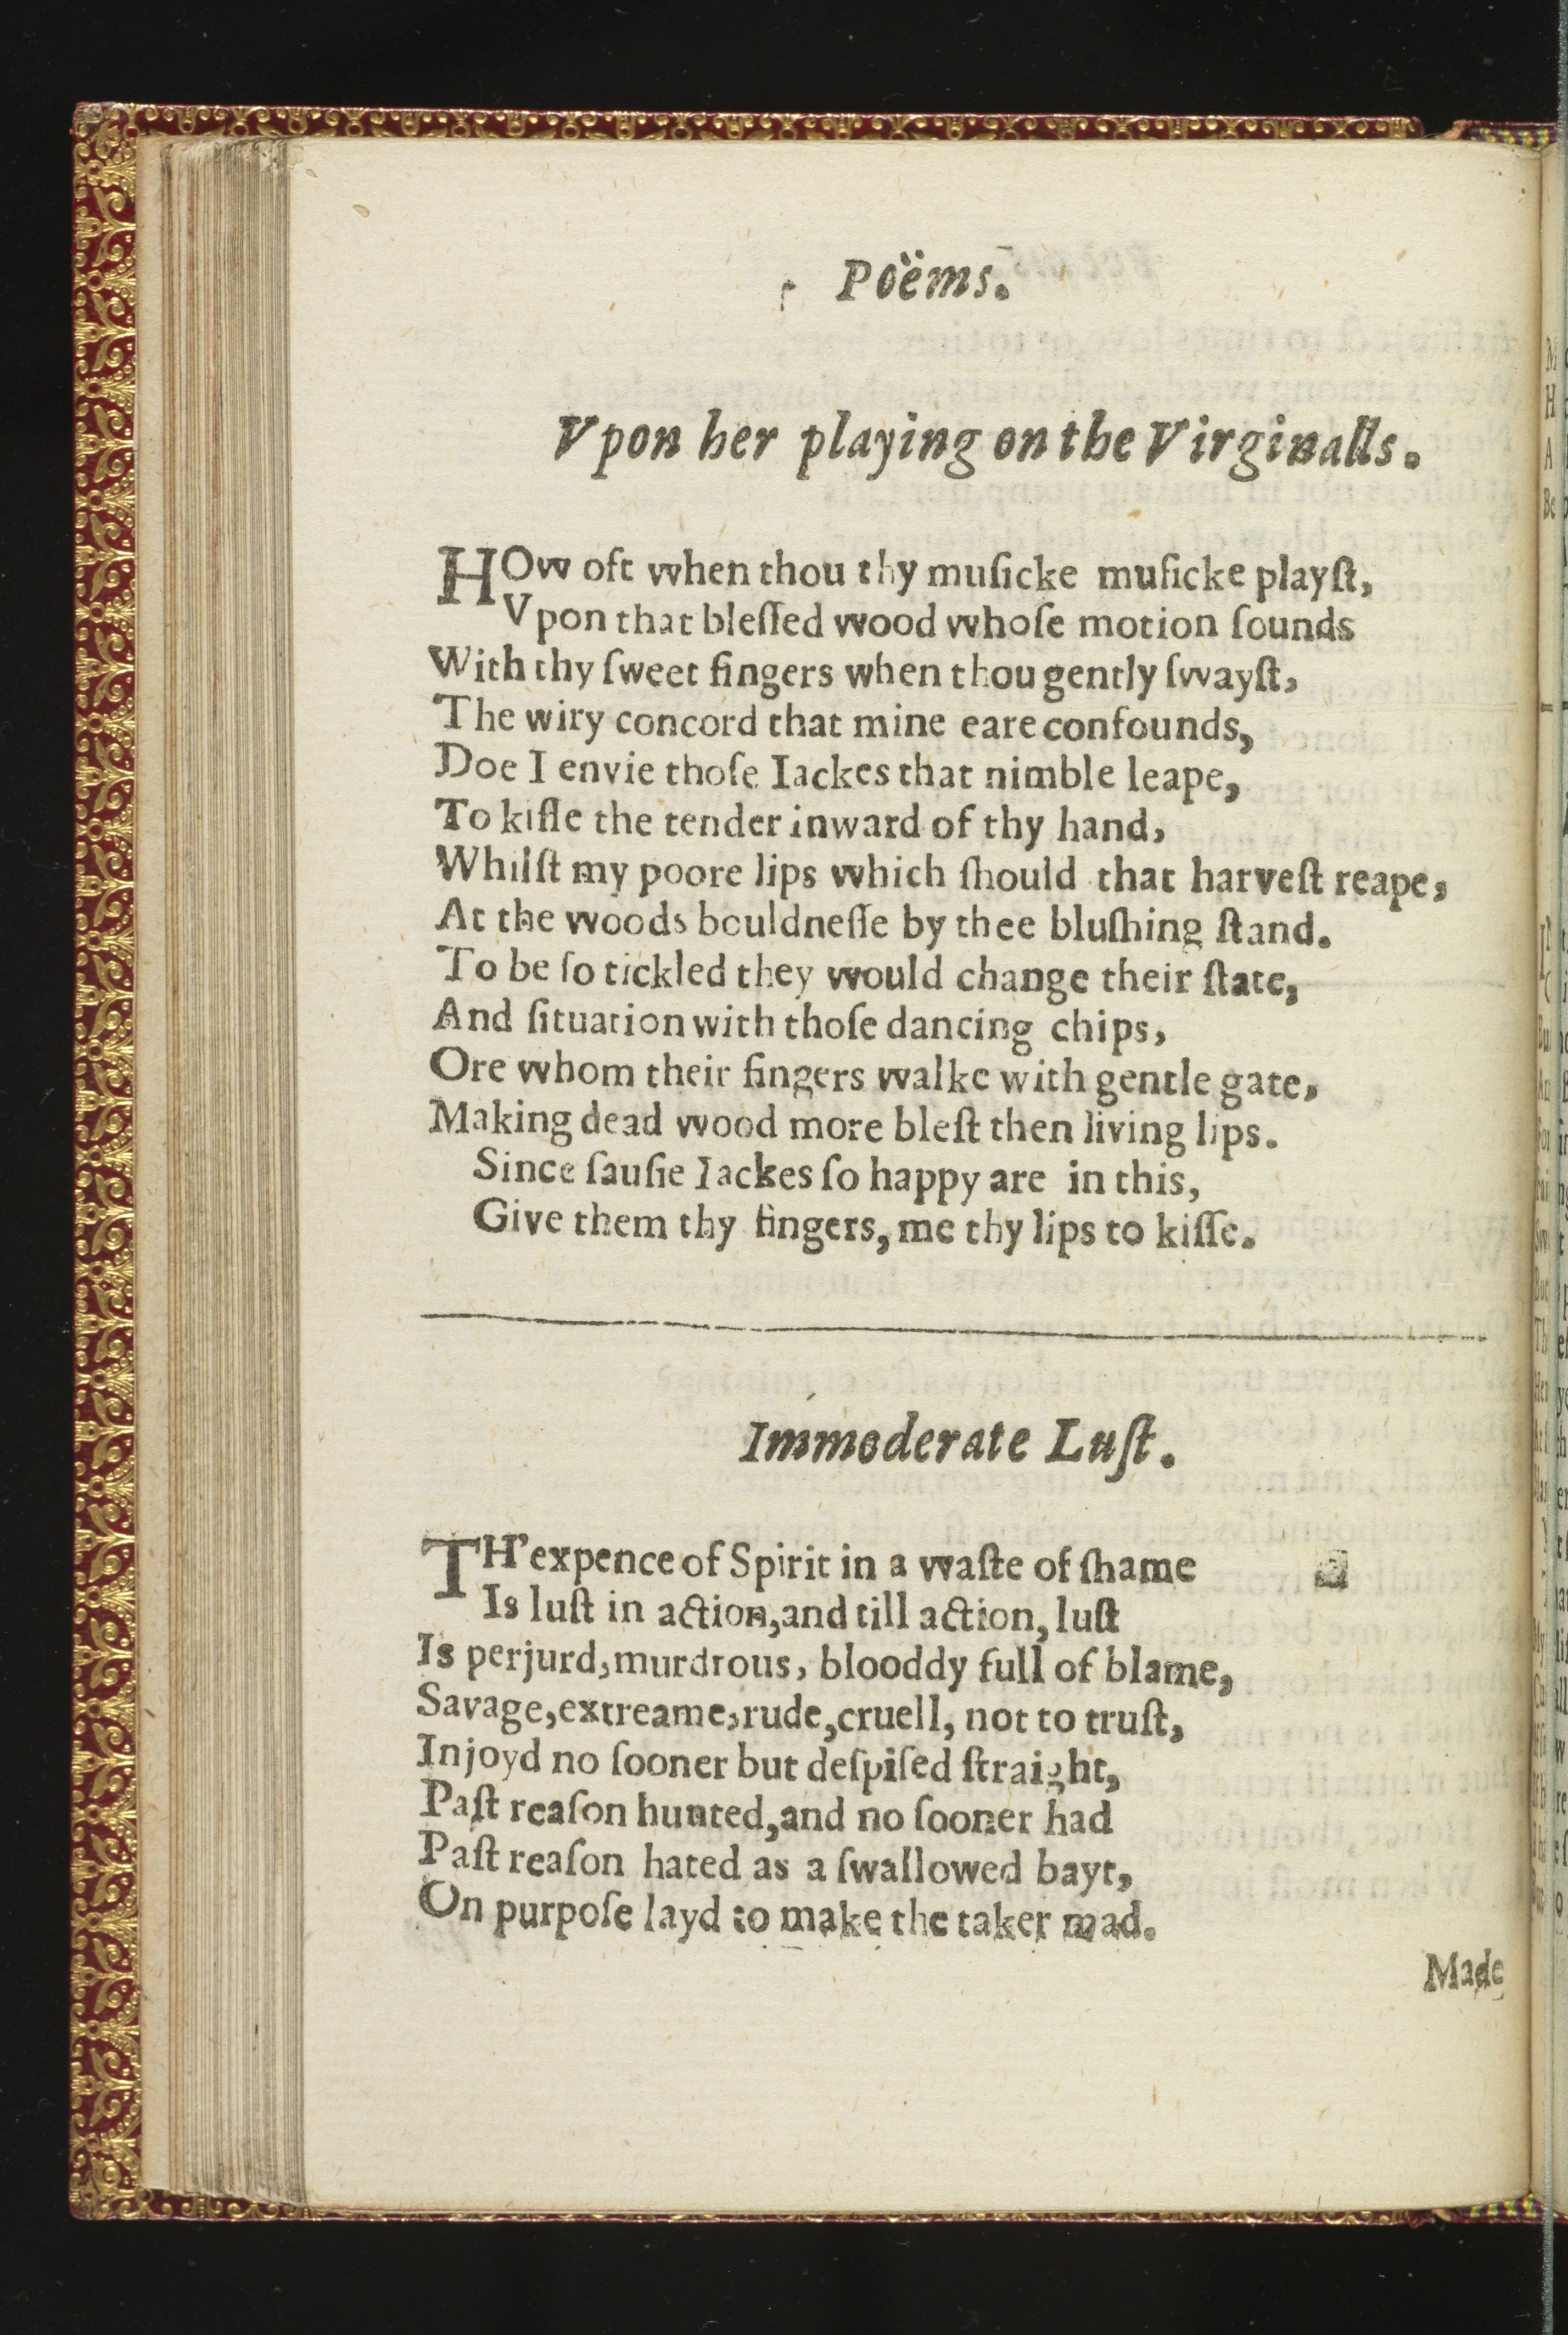 Poëms.
Vpon her playing on the Virginalls.
HOw oft when thou thy muſicke muſicke playſt,
Vpon that bleſſed wood whoſe motion ſounds
With thy ſweet fingers when thou gently ſwayſt,
The wiry concord that mine eare confounds,
Doe I envie thoſe Iackes that nimble leape,
To kiſſe the tender inward of thy hand,
Whilſt my poore lips which ſhould that harveſt reape,
At the woods bouldneſſe by thee bluſhing ſtand.
To be ſo tickled they would change their ſtate,
And ſituation with thoſe dancing chips,
Ore whom their fingers walke with gentle gate,
Making dead wood more bleſt then living lips.
Since ſauſie Iackes ſo happy are in this,
Give them thy fingers, me thy lips to kiſſe.
Immoderate Luſt.
TH'expence of Spirit in a waſte of ſhame
Is luſt in action,and till action, luſt
Is perjurd,murdrous, blooddy full of blame,
Savage,extreame,rude,cruell, not to truſt,
Injoyd no ſooner but deſpiſed ſtraight,
Paſt reaſon hunted,and no ſooner had
Paſt reaſon hated as a ſwallowed bayt,
On purpoſe layd to make the taker mad.
Made